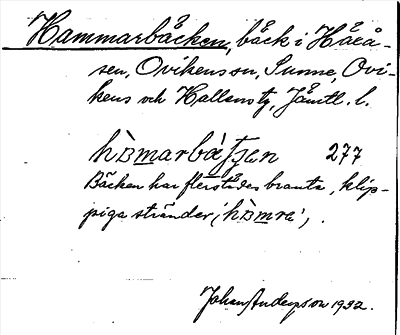 Hammarbäcken, bäck i Håså-
sen, Ovikens sn, Sunne, Ovi-
kens och Hallens tg, Jämtl. l.
hɒmarbàʃʒen 277
Bäcken har flerstädes branta, klip-
piga stränder ('hɒmrà').
Johan Anderson 1932.